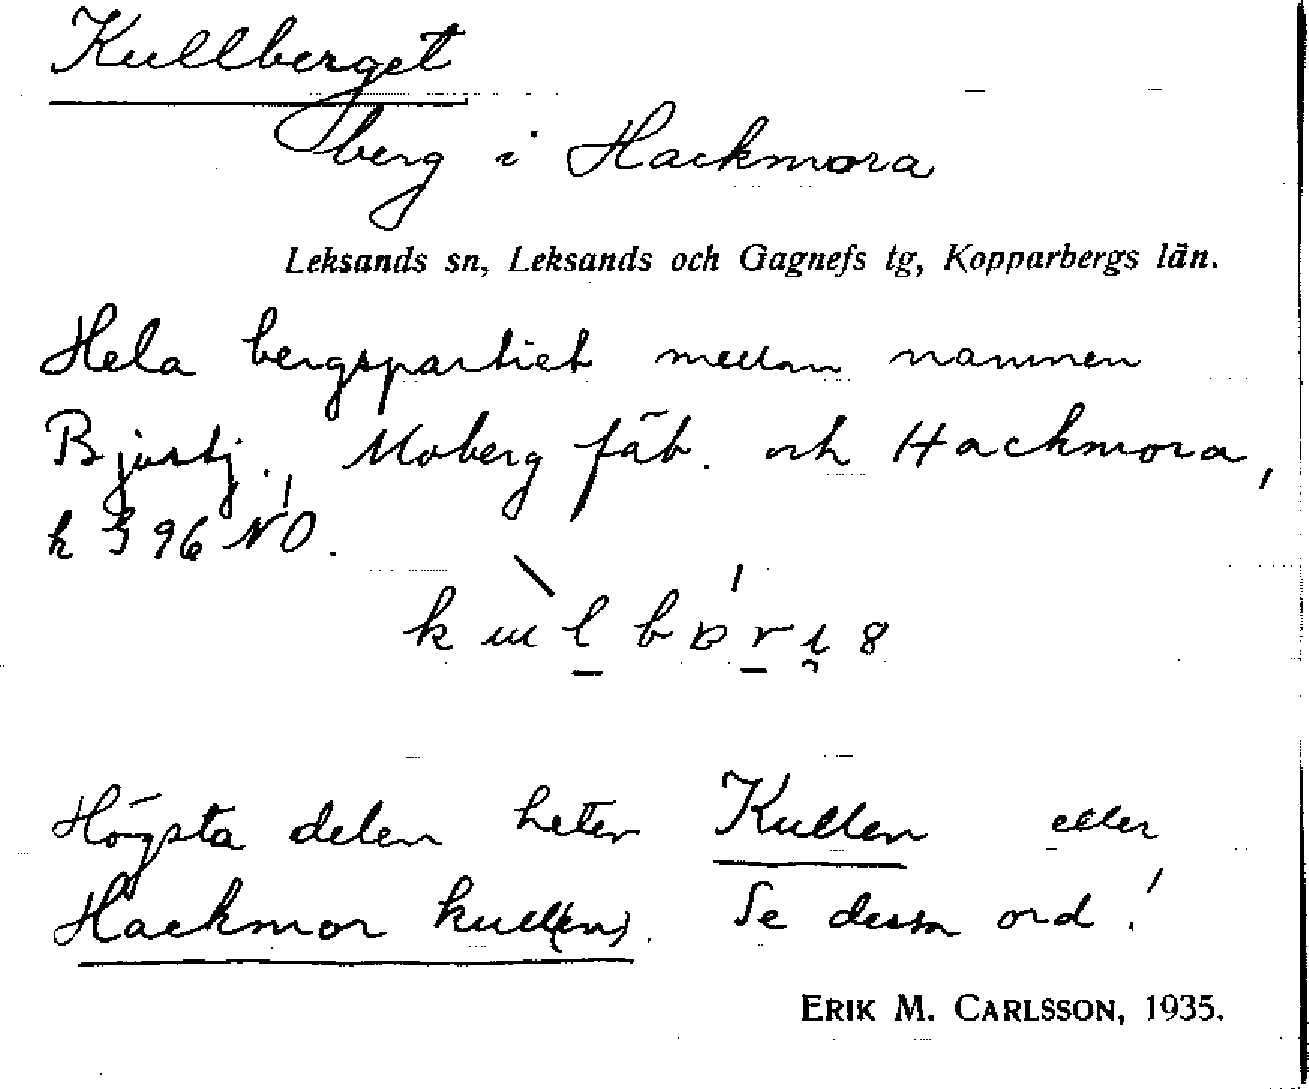 Kullberget
berg i Hackmora
Leksands sn, Leksands och Gagnefs tg, Kopparbergs län.
Hela bergspartiet mellan namnen
Moberg fäb. och Hackmora,
k 396 NO.
Högsta delen heter Kullen eller
Hackmor kull(en). Se dessa ord!
ERIK M. CARLSSON, 1935.